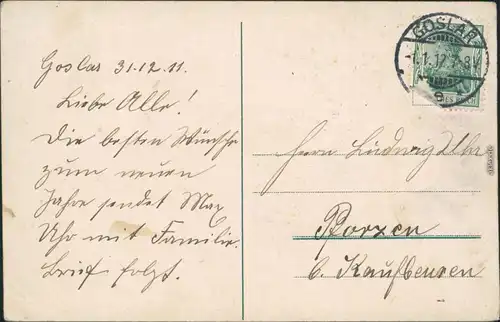 Goslar 31.12.11.
Liebe Alle!
Die besten Wünsche
zum neuen
Jahre sendet Max
Uhr mit Familie.
Brief folgt.
GOSLAR
1.1.12.7-8V
Herrn Ludwig Uhr
Pforzen
b. Kaufbeuren